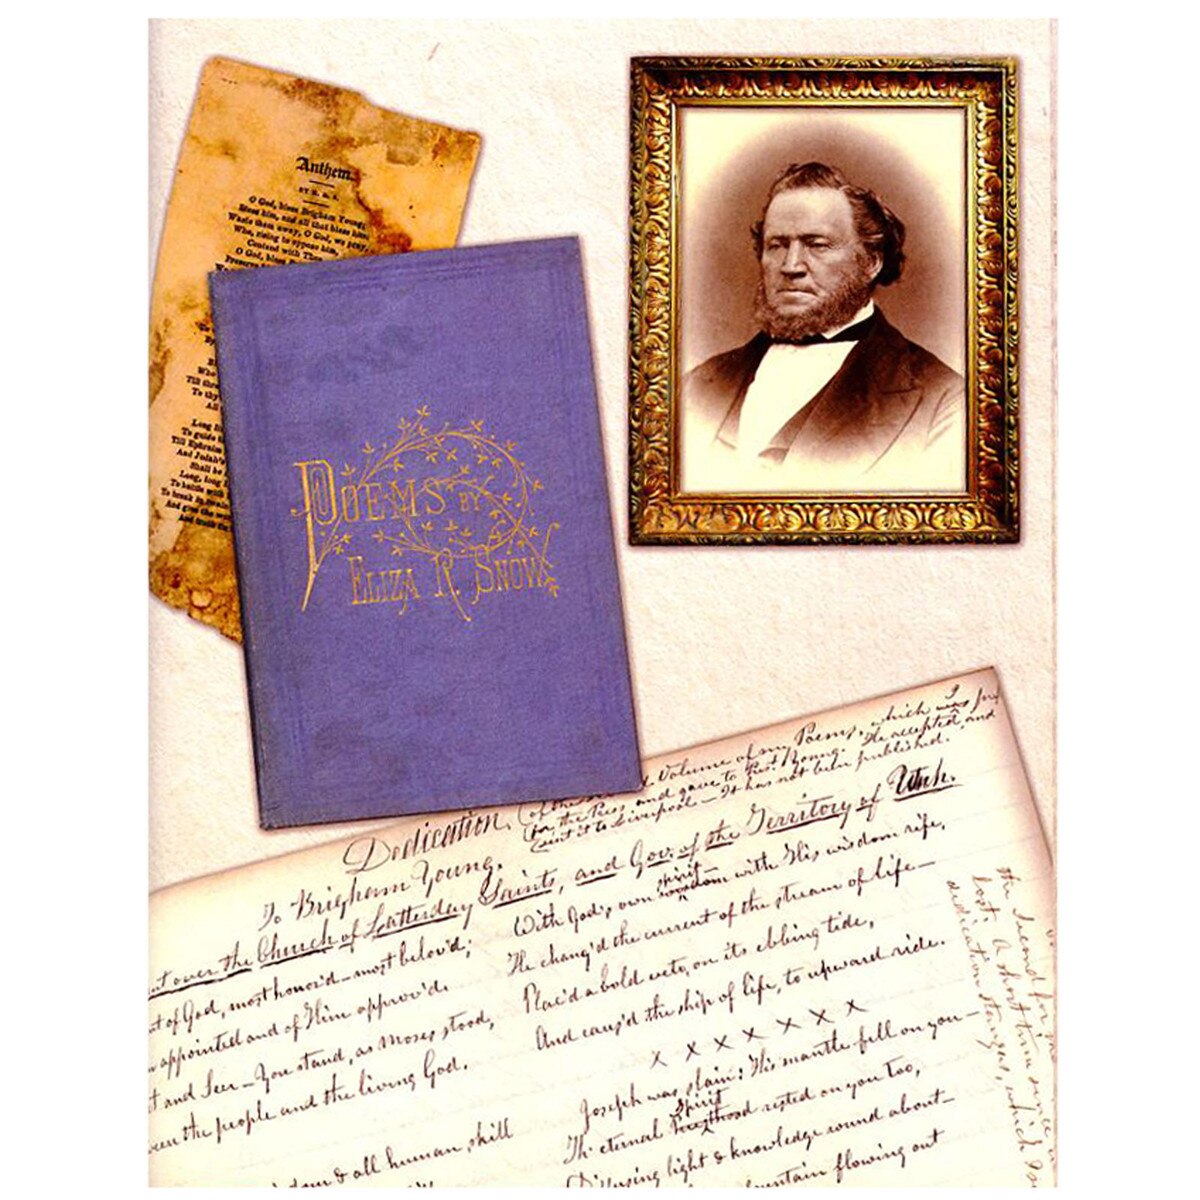 Anthem.
BY E. R. S.
O God, bless Brigham Young;
Bless him, and all that bless him
Waste them away, O God, we pray,
Who, rising to oppose him,
Contend with
O God, bless
Preserve
Till
To thy
All
Long
To guide
Till Ephraim
And Judah's
Shall be
Long, long
To battle with
To break
And give the
And
POEMS BY
ELIZA R. SNOW
Volume of my Poems, which I was
for the Press and gave to Prest. Young. He accepted, and
sent it to Liverpool – It has not been published.
Dedication,
To Brigham Young.
over the Church of Latterday Saints, and Gov. of the Territory of Utah.
of God, most honor'd – most belov'd;
appointed and of Him approv'd.
and Seer – You stand, as Moses stood,
the people and the living God.
& all human skill
With God's own spirit with His wisdom rife,
He chang'd the current of the stream of life –
Plac'd a bold veto, on its ebbing tide,
And caus'd the ship of life, to upward ride.
x x x x x x x
Joseph was slain: His mantle fell on you –
Spirit
The eternal Priesthood rested on you too,
Diffusing light & knowledge round about –
fountain flowing out
the second for
lost. A short time since
dedication stanzas, which